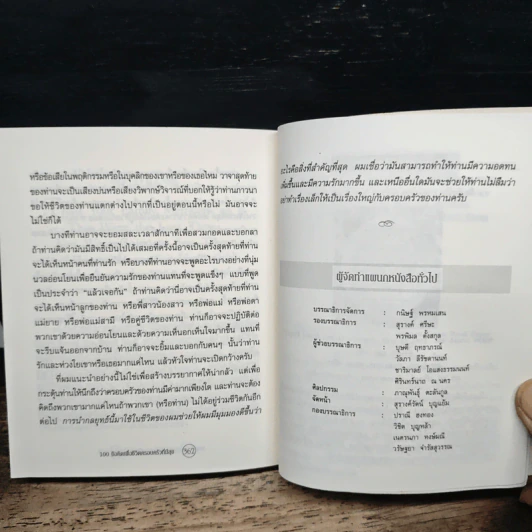 หรือข้อเสียในพฤติกรรมหรือในบุคลิกของเขาหรือของเธอไหม วาจาสุดท้าย
ของท่านจะเป็นเสียงบ่นหรือเสียงวิพากษ์วิจารณ์ที่บอกให้รู้ว่าท่านภาวนา
ขอให้ชีวิตของท่านแตกต่างไปจากที่เป็นอยู่ตอนนี้หรือไม่ มันอาจจะ
ไม่ใช่ก็ได้
บางทีท่านอาจจะยอมสละเวลาสักนาทีเพื่อสวมกอดและบอกลา
ถ้าท่านคิดว่ามันมีสิทธิ์เป็นไปได้เสมอที่ครั้งนี้อาจเป็นครั้งสุดท้ายที่ท่าน
จะได้เห็นหน้าคนที่ท่านรัก หรือบางทีท่านอาจจะพูดอะไรบางอย่างที่นุ่ม
นวลอ่อนโยนเพื่อยืนยันความรักของท่านแทนที่จะพูดแข็งๆ แบบที่พูด
เป็นประจำว่า "แล้วเจอกัน" ถ้าท่านคิดว่านี่อาจเป็นครั้งสุดท้ายที่ท่าน
จะได้เห็นหน้าลูกของท่าน หรือพี่สาวน้องสาว หรือพ่อแม่ หรือพ่อตา
แม่ยาย หรือพ่อแม่สามี หรือคู่ชีวิตของท่าน ท่านอาจจะปฏิบัติต่อ
พวกเขาด้วยความอ่อนโยนและด้วยความเห็นอกเห็นใจมากขึ้น แทนที่
จะรีบแจ้นออกจากบ้าน ท่านก็อาจจะยิ้มและบอกกับคนๆ นั้นว่าท่าน
รักและห่วงใยเขาหรือเธอมากแค่ไหน แล้วหัวใจท่านจะเปิดกว้างครับ
ที่ผมแนะนำอย่างนี้ไม่ใช่เพื่อสร้างบรรยากาศให้น่ากลัว แต่เพื่อ
กระตุ้นท่านให้นึกถึงว่าครอบครัวของท่านมีค่ามากเพียงใด และท่านจะต้อง
คิดถึงพวกเขามากแค่ไหนถ้าพวกเขา (หรือท่าน) ไม่ได้อยู่ร่วมชีวิตกันอีก
ต่อไป การนำกลยุทธ์นี้มาใช้ในชีวิตของผมช่วยให้ผมมีมุมมองดีขึ้นว่า
100 ข้อคิดเพื่อชีวิตครอบครัวที่มีสุข 367
อะไรคือสิ่งที่สำคัญที่สุด ผมเชื่อว่ามันสามารถทำให้ท่านมีความอดทน
เพิ่มขึ้นและมีความรักมากขึ้น และเหนืออื่นใดมันจะช่วยให้ท่านไม่ลืมว่า
อย่าทำเรื่องเล็กให้เป็นเรื่องใหญ่กับครอบครัวของท่านครับ
ผู้จัดทำแผนกหนังสือทั่วไป
บรรณาธิการจัดการ : กนิษฐ์ พรหมเสน
รองบรรณาธิการ : สุรางค์ ศรีษะ
พรพิมล ตั้งสกุล
ผู้ช่วยบรรณาธิการ : บุษดี
วัลภา
ชาริมาลย์ โอแสงธรรมนนท์
ศิรินทร์นาถ ณ นคร
ศิลปกรรม : ภาณุพันธุ์
จัดหน้า : สุรางค์รัตน์ บุญแย้ม
กองบรรณาธิการ : ปราณี
วิชิต บุญหล้า
เนตรนภา
วรัษฐยา จำรัสสุวรรณ